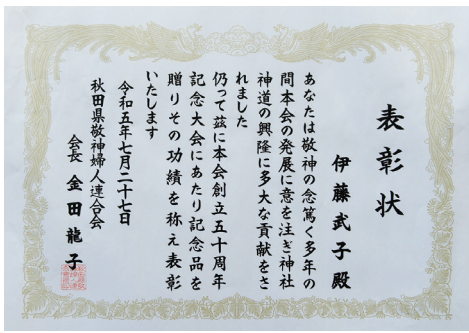 表彰状
伊藤武子殿
あなたは敬神の念篤く多年の
間本会の発展に意を注ぎ神社
神道の興隆に多大な貢献をさ
れました
仍って茲に本会創立五十周年
記念大会にあたり記念品を
贈りその功績を称え表彰
いたします
令和五年七月二十七日
秋田県敬神婦人連合会
会長 金田龍子